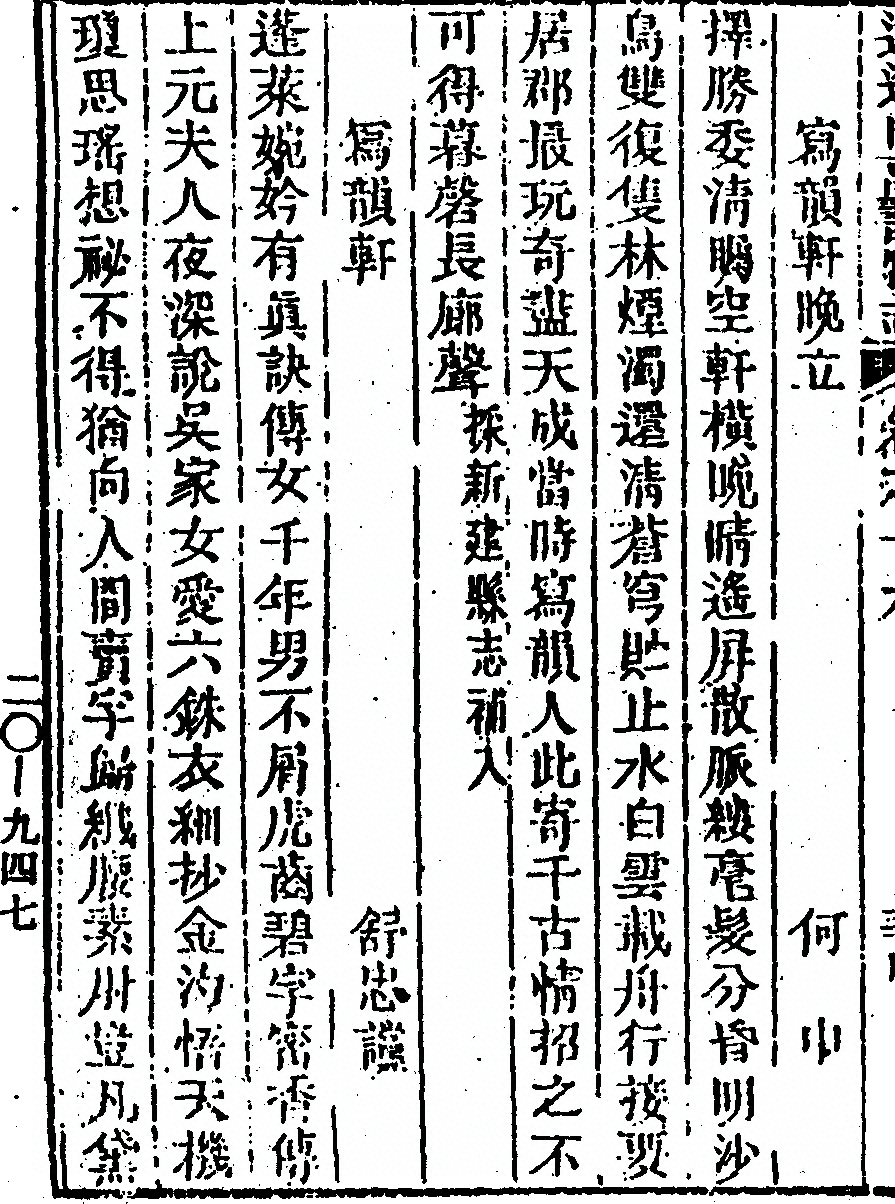 寫韻軒晚立 何中
擇勝委清矚空軒橫晚晴遙屏散脈縷毫髮分昏明沙
鳥雙復隻林煙濁還清蒼穹貯止水白雲載舟行接翼
居郡最玩奇盡天成當時寫韻人此寄千古情招之不
可得暮磬長廊聲 採新建縣志補入
寫韻軒 舒忠讜
蓬萊婉妗有眞訣傳女千年男不屑虎齒碧字密香傳
上元夫人夜深說吳家女愛六銖衣細抄金沟悟天機
瓊思瑤想祕不得猶向人間賣字歸綫腰素川豈凡黛
二〇—九四七